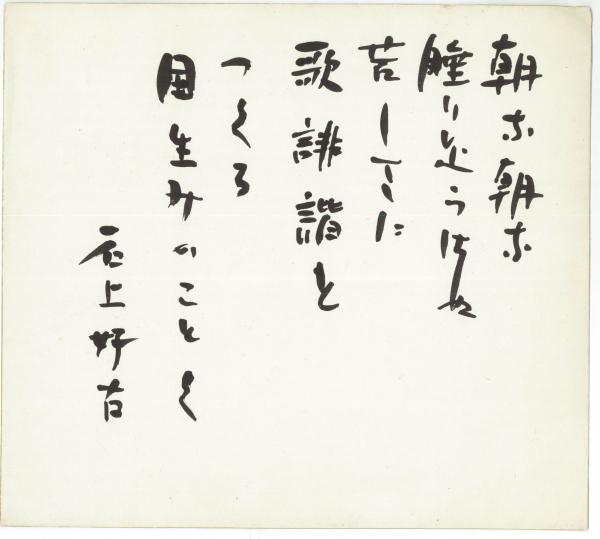 朝な朝な
睡り足らはぬ
苦しさに
歌誹諧を
つくる
国生みのことく
石上好古